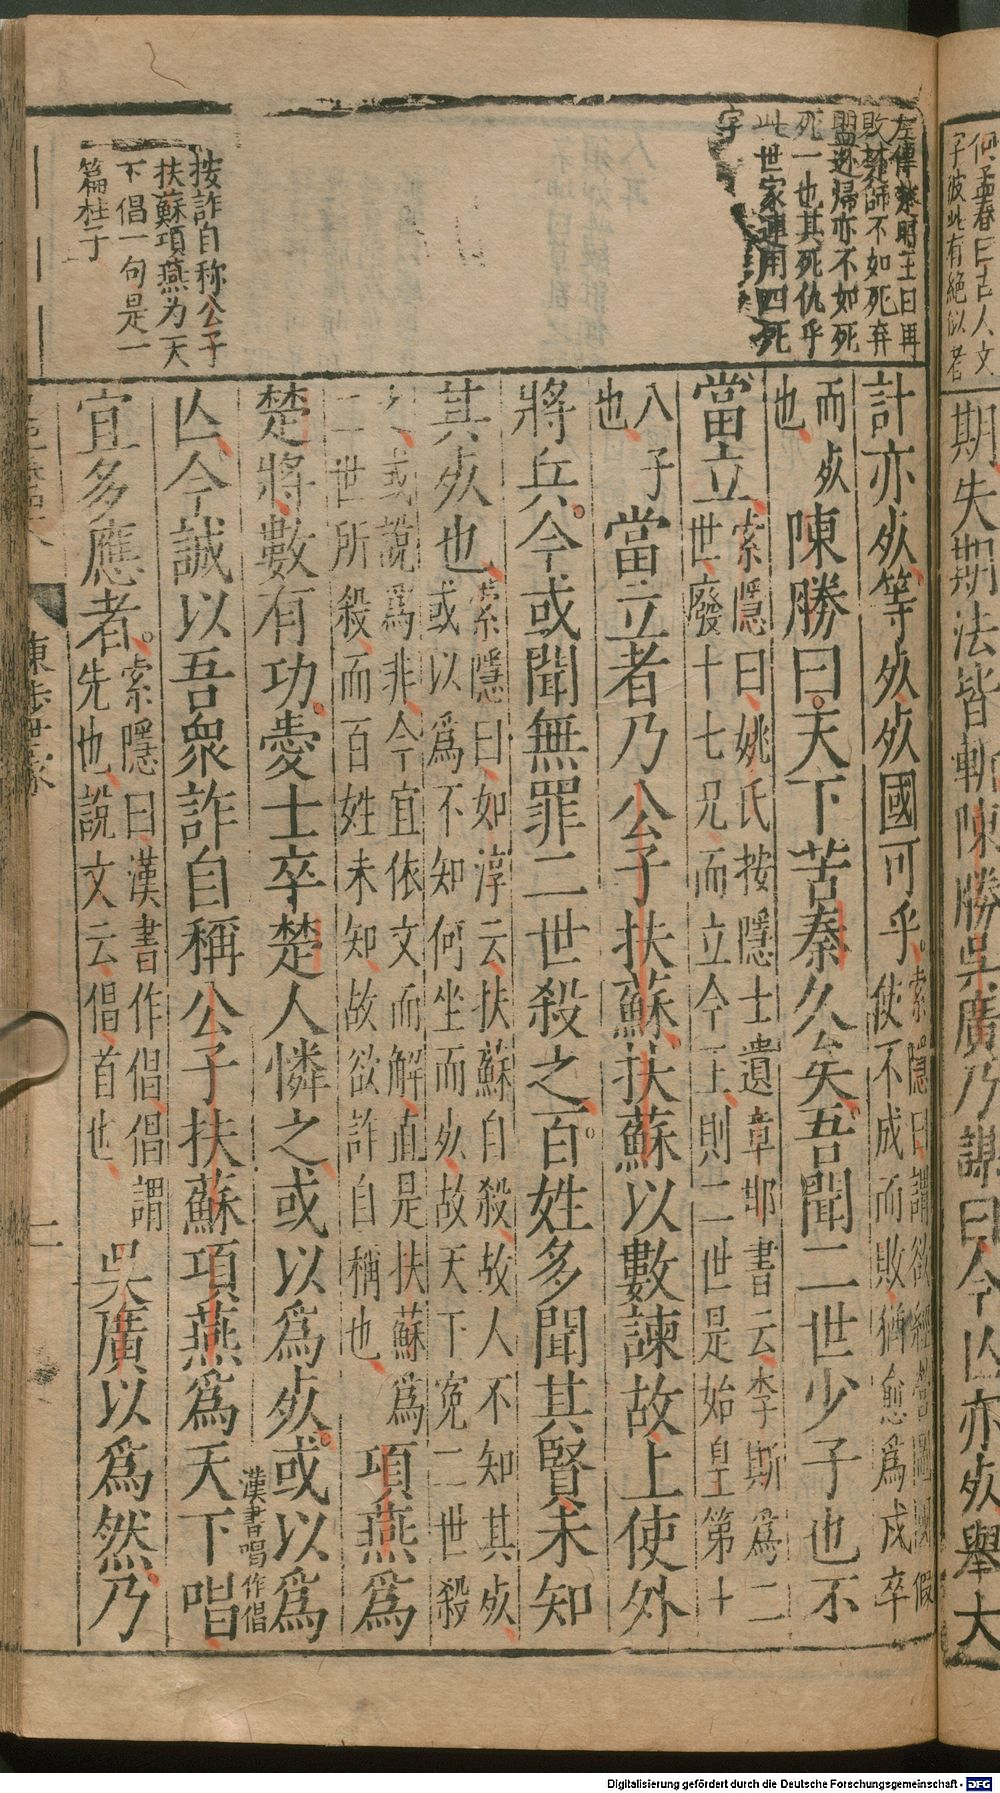 何孟春曰古人文
字彼此有絶似者
期失期法皆斬陳勝吳廣乃謀曰今亾亦死舉大
左傳楚昭王曰再
敗楚師不如死弃
盟逃歸亦不如死
死一也其死仇乎
此世家連用四死
字
按詐自称公子
扶蘇項燕为天
下倡一句是一
篇柱子
計亦死等死死國可乎
索隱曰謂欲經營圖國假
使不成而敗猶愈爲戍卒
而死
也
陳勝曰天下苦秦久矣吾聞二世少子也不
當立
索隱曰姚氏按隱士遺章邯書云李斯爲二
世廢十七兄而立今王則二世是始皇第十
八子
也
當立者乃公子扶蘇扶蘇以數諫故上使外
將兵今或聞無罪二世殺之百姓多聞其賢未知
其死也
索隱曰如淳云扶蘇自殺故人不知其死
或以爲不知何坐而死故天下寃二世殺
之或説爲非今宜依文而解直是扶蘇爲
二世所殺而百姓未知故欲詐自稱也
項燕爲
楚將數有功愛士卒楚人憐之或以爲死或以爲
亾今誠以吾衆詐自稱公子扶蘇項燕爲天下唱
漢書唱作倡
宜多應者
索隱曰漢書作倡倡謂
先也説文云倡首也
吳廣以爲然乃
陳涉世家
二
Digitalisierung gefördert durch die Deutsche Forschungsgemeinschaft - DFG